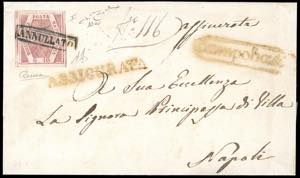 POSTA
ANNULLATO
N.º 116 Assicurata
ASSICURATA
Campobasso
A Sua Eccellenza
La Signora Principessa di Villa
Napoli